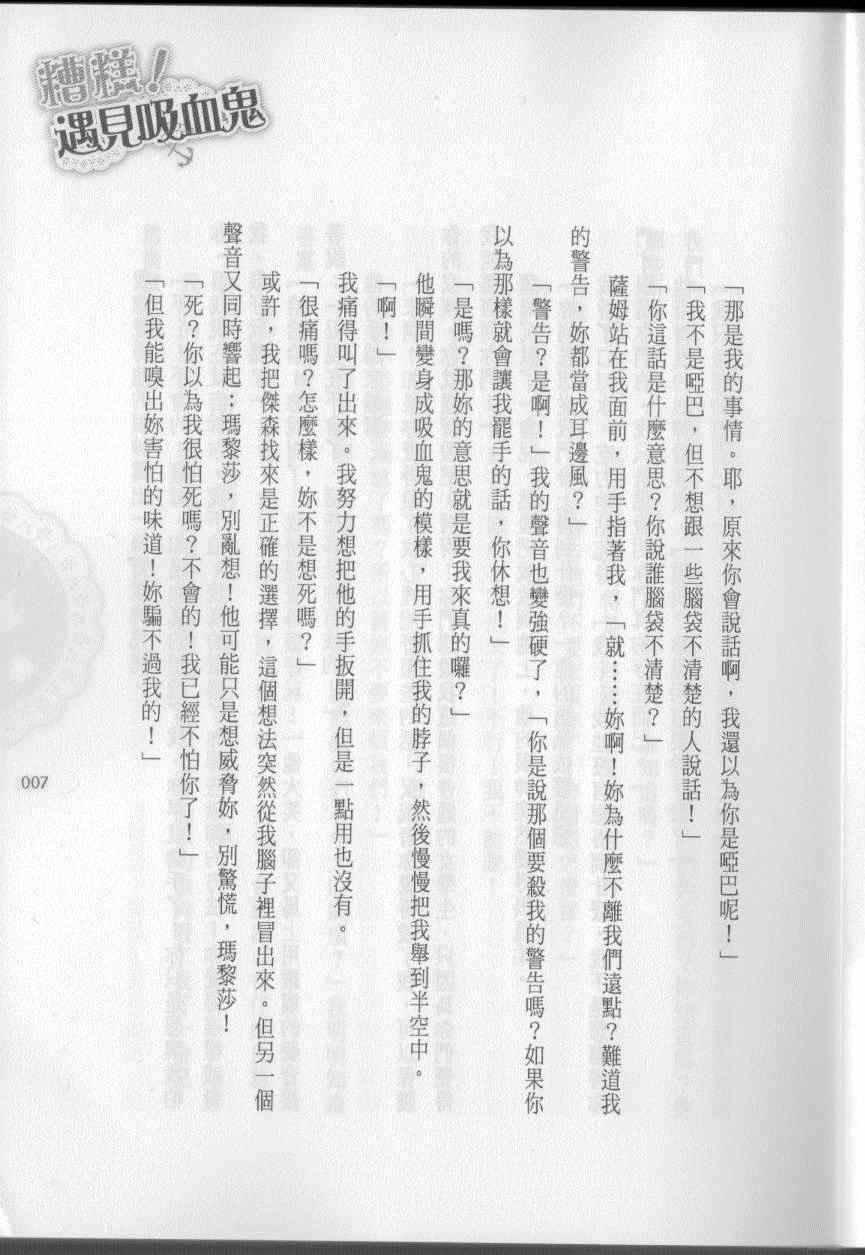 糟糕！
遇見吸血鬼
「那是我的事情。耶，原來你會說話啊，我還以為你是啞巴呢！」
「我不是啞巴，但不想跟一些腦袋不清楚的人說話！」
「你這話是什麼意思？你說誰腦袋不清楚？」
薩姆站在我面前，用手指著我，「就……妳啊！妳為什麼不離我們遠點？難道我
的警告，妳都當成耳邊風？」
「警告？是啊！」我的聲音也變強硬了，「你是說那個要殺我的警告嗎？如果你
以為那樣就會讓我罷手的話，你休想！」
「是嗎？那妳的意思就是要我來真的囉？」
他瞬間變身成吸血鬼的模樣，用手抓住我的脖子，然後慢慢把我舉到半空中。
「啊！」
我痛得叫了出來。我努力想把他的手扳開，但是一點用也沒有。
「很痛嗎？怎麼樣，妳不是想死嗎？」
或許，我把傑森找來是正確的選擇，這個想法突然從我腦子裡冒出來。但另一個
聲音又同時響起：瑪黎莎，別亂想！他可能只是想威脅妳，別驚慌，瑪黎莎！
「死？你以為我很怕死嗎？不會的！我已經不怕你了！」
「但我能嗅出妳害怕的味道！妳騙不過我的！」
007